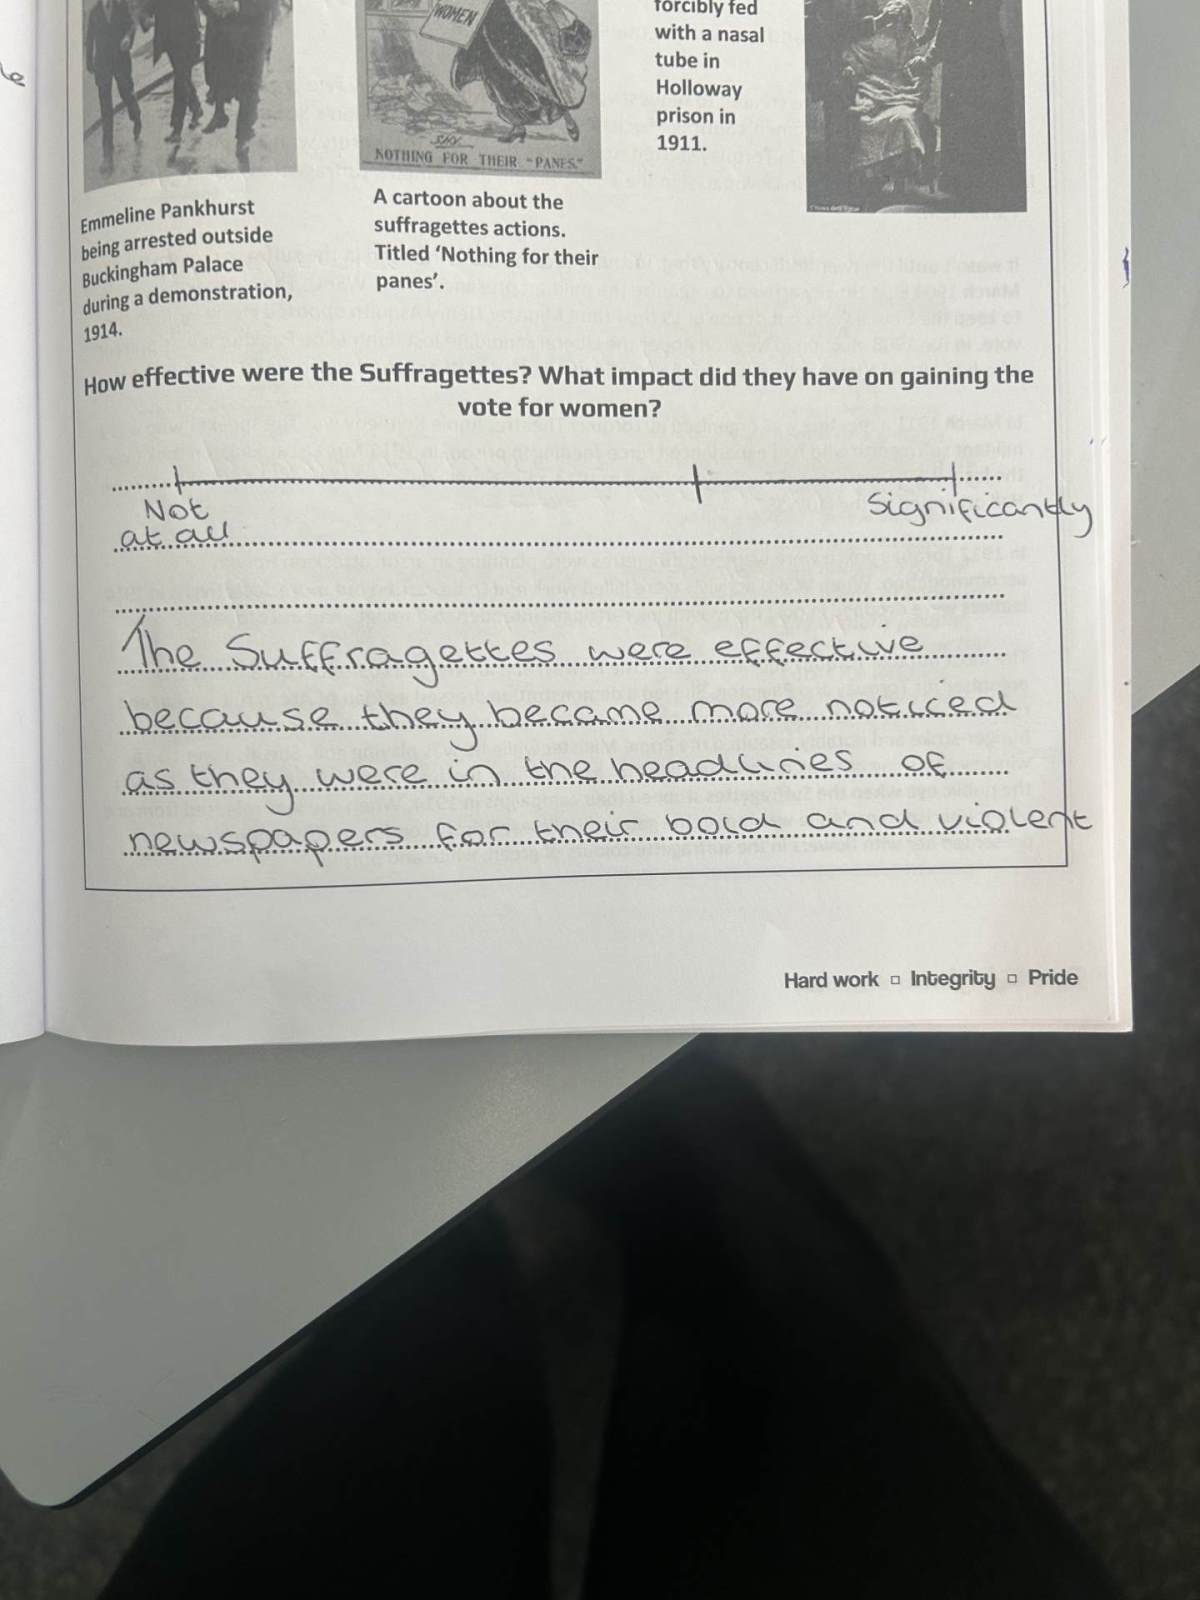 WOMEN
SAY
NOTHING FOR THEIR "PANES."
forcibly fed
with a nasal
tube in
Holloway
prison in
1911.
Emmeline Pankhurst
being arrested outside
Buckingham Palace
during a demonstration,
1914.
A cartoon about the
suffragettes actions.
Titled 'Nothing for their
panes'.
How effective were the Suffragettes? What impact did they have on gaining the
vote for women?
Not
at all
Significantly
The Suffragettes were effective
because they became more noticed
as they were in the headlines of
newspapers for their bold and violent
Hard work Integrity Pride